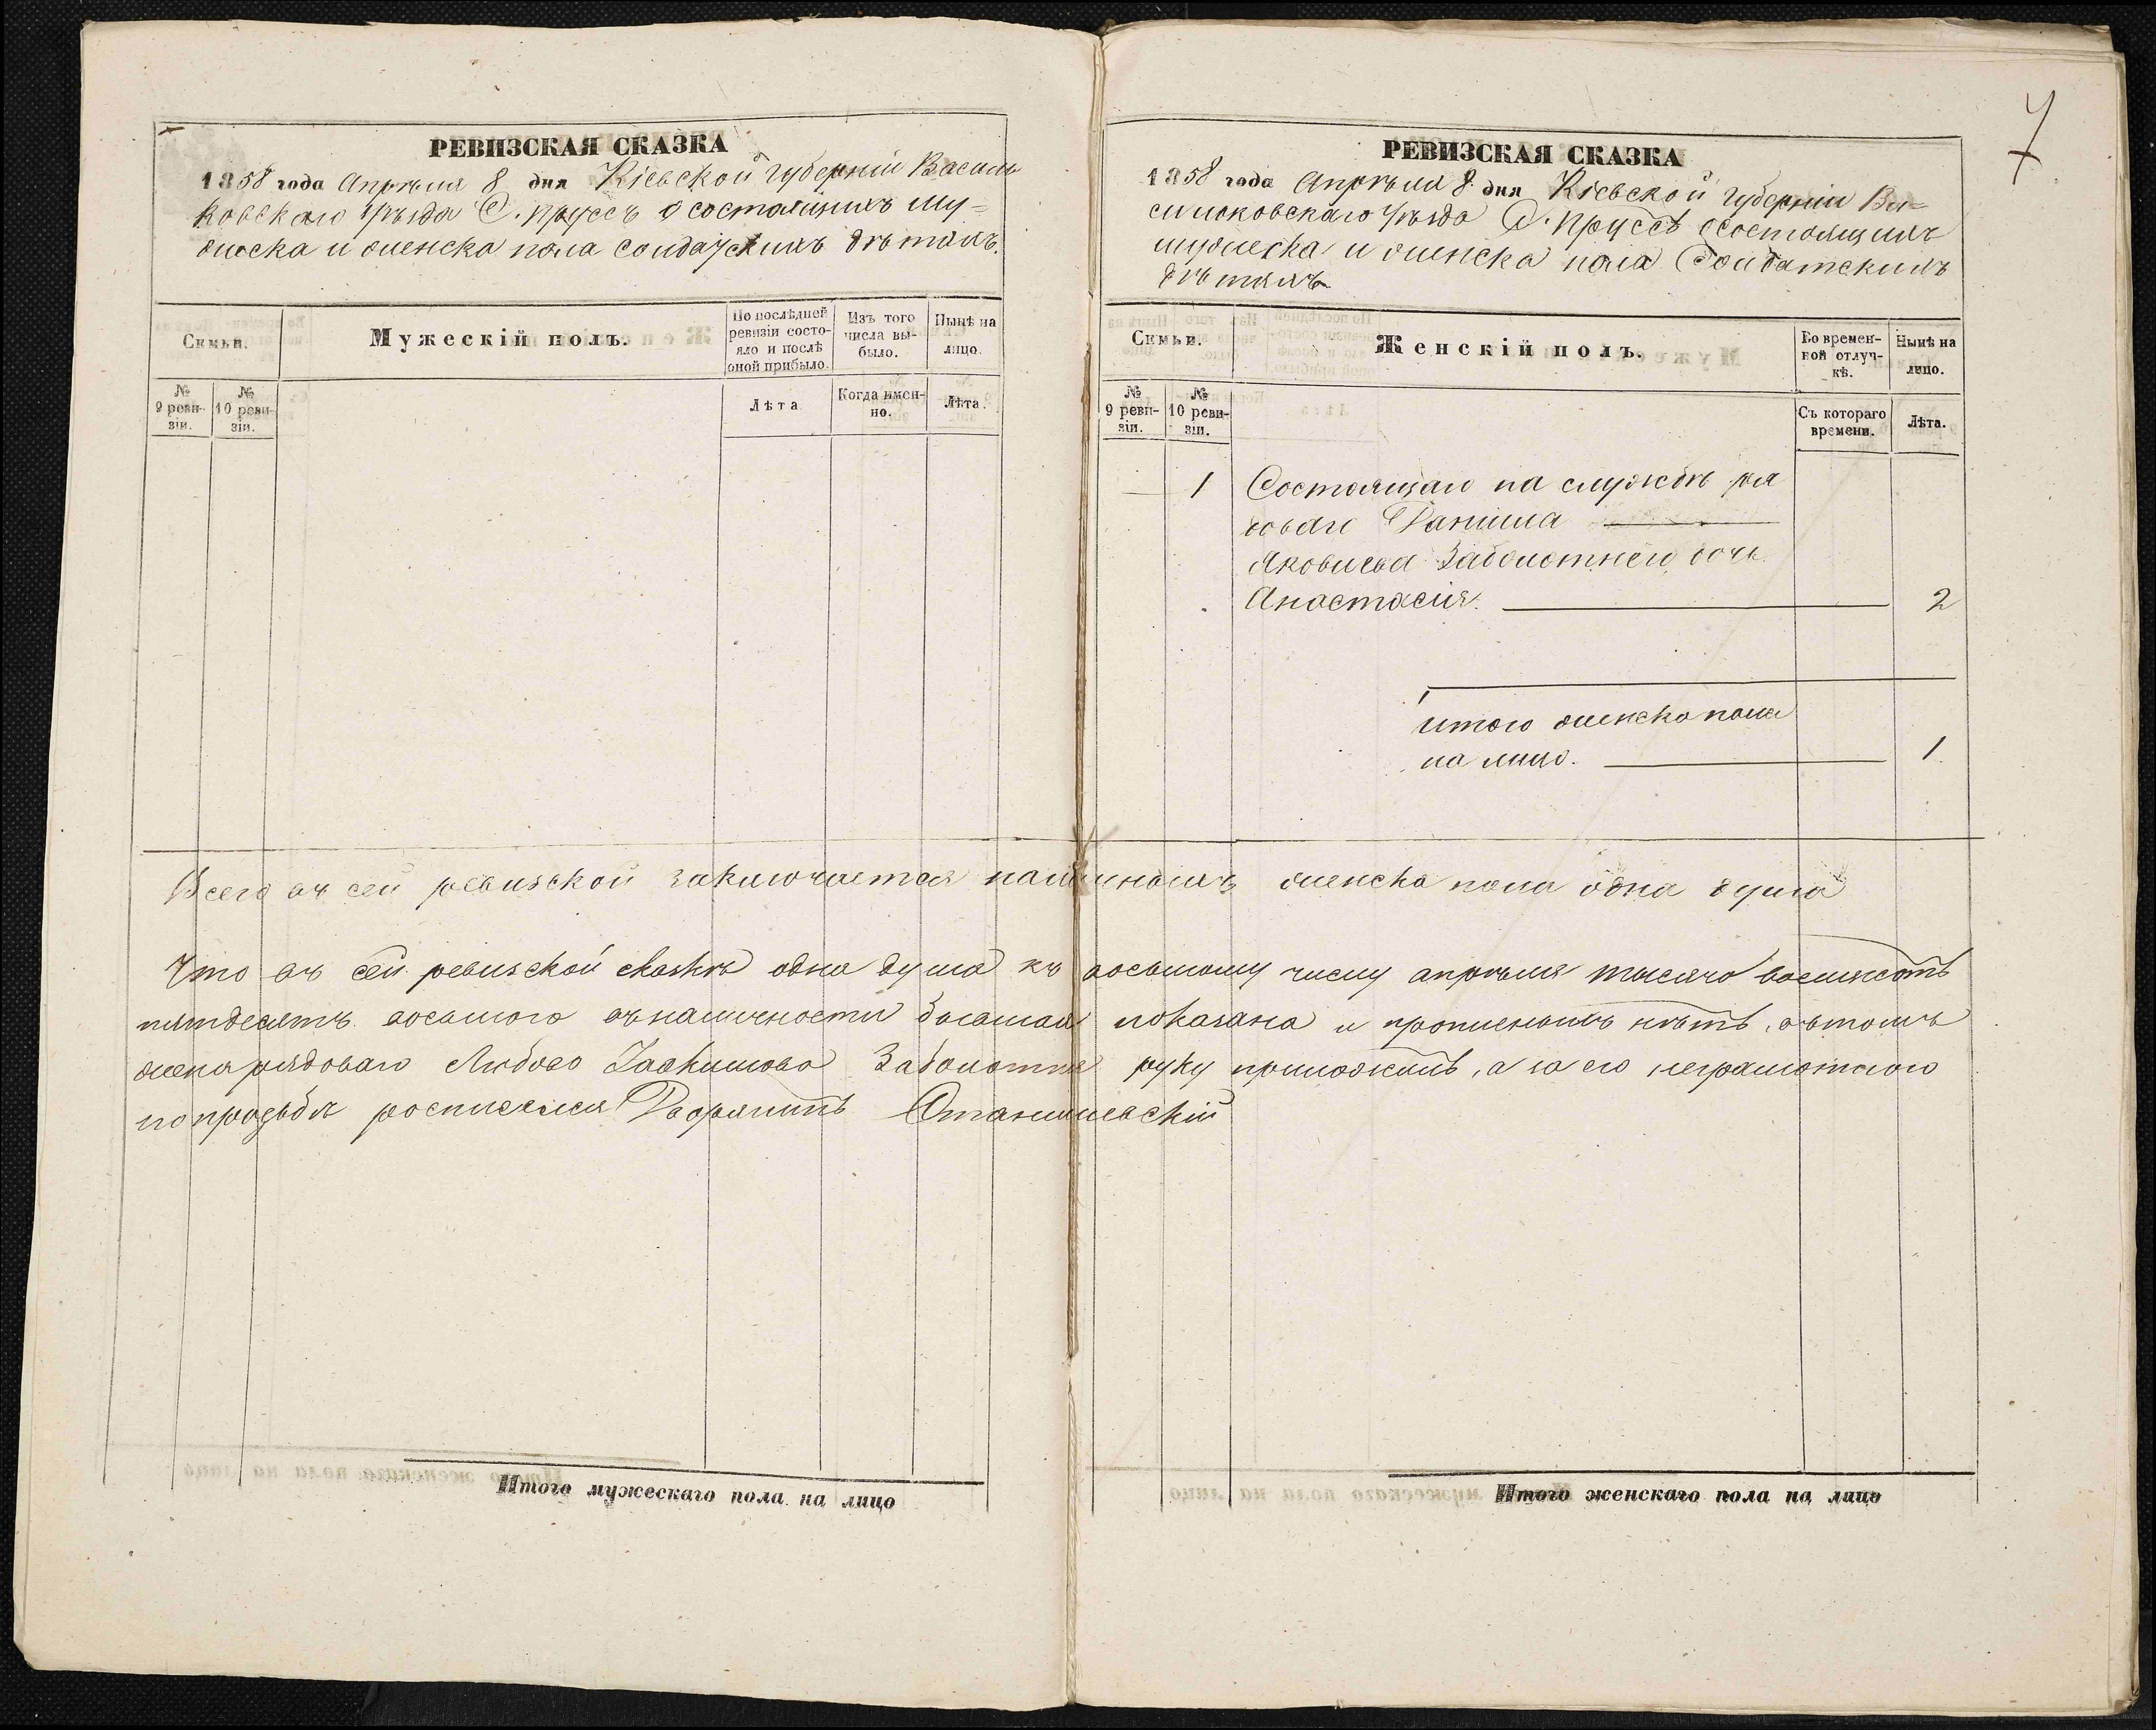 РЕВИЗСКАЯ СКАЗКА
1858 года Апрѣля 8 дня Кіевской губерніи Василь
ковскаго уѣзда С. Пруссъ о состоящихъ му=
жеска и женска пола солдатскихъ дѣтяхъ.
Семьи.
Мужескій полъ.
По послѣдней ревизіи состояло и послѣ оной прибыло.
Изъ того числа выбыло.
Нынѣ на лицо.
№ 9 ревизіи.
№ 10 ревизіи.
Лѣта
Когда именно.
Лѣта.
Итого мужескаго пола на лицо
7
РЕВИЗСКАЯ СКАЗКА
1858 года Апрѣля 8 дня Кіевской губерніи Ва=
сильковскаго уѣзда С. Пруссъ о состоящихъ
мужеска и женска пола Солдатскихъ
дѣтяхъ
Семьи.
Женскій полъ.
Во временной отлучкѣ.
Нынѣ на лицо.
№ 9 ревизіи.
№ 10 ревизіи.
Съ котораго времени.
Лѣта.
— 1 Состоящаго на службѣ ря
доваго Данила
Яковлева Заболотнего дочь
Анастасія. 2
итого женска пола
на лицо. 1
Всего въ сей ревизской заключается наличныхъ женска пола одна душа
Что въ сей ревизской сказкѣ одна душа къ восьмому числу апрѣля тысячо восемсотъ
пятдесятъ восьмого въ наличности бывшая показана и прописныхъ нѣтъ, въ томъ
жена рядоваго Любово Заболотня руку приложилъ, а за его неграмотного
по прозьбѣ росписался Дворянинъ Станишевскій
Итого женскаго пола на лицо